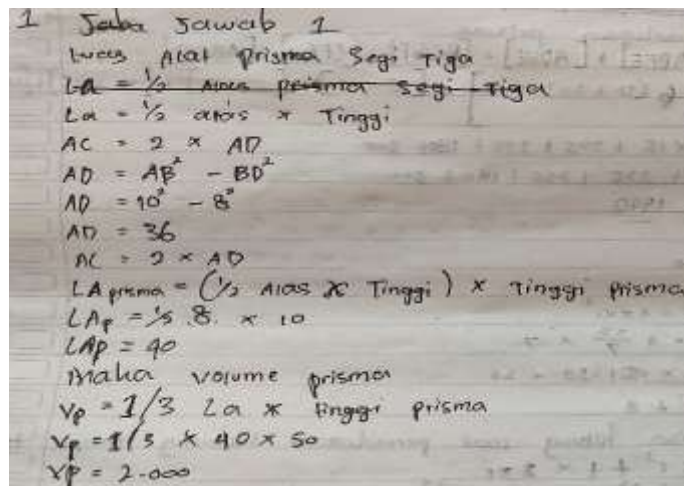 1 Jaba Jawab 1
Luas Alat Prisma Segi Tiga
La = 1/2 Alas prisma Segi Tiga
La = 1/2 atas x Tinggi
AC = 2 x AD
AD = AB² - BD²
AD = 10² - 8²
AD = 36
AC = 2 x AD
LA prisma = (1/2 Alas x Tinggi) x Tinggi prisma
LAp = 1/5 8. x 10
LAp = 40
maka volume prisma
Vp = 1/3 La x tinggi prisma
Vp = 1/3 x 40 x 50
Vp = 2.000